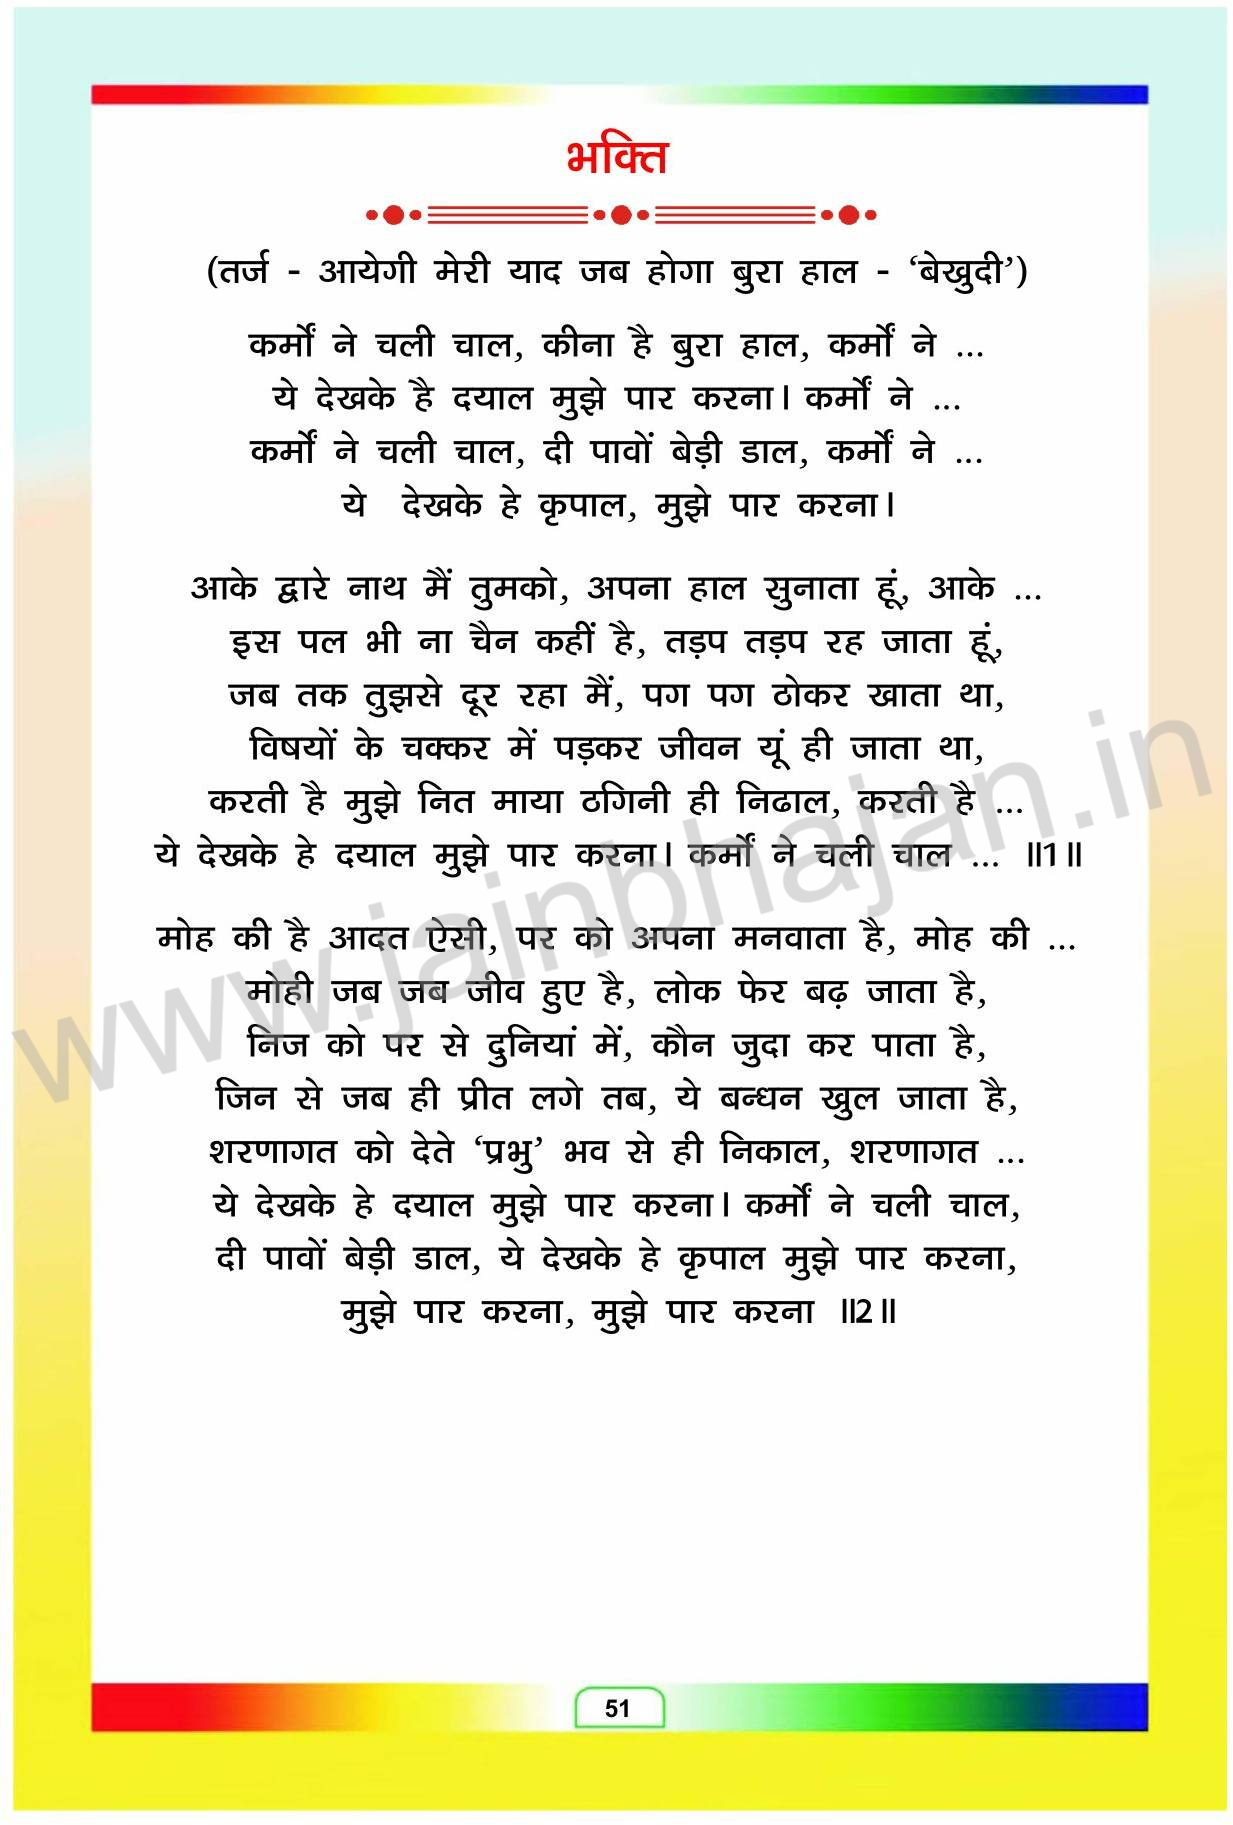 भक्ति
(तर्ज - आयेगी मेरी याद जब होगा बुरा हाल - ‘बेखुदी’)
कर्मों ने चली चाल, कीना है बुरा हाल, कर्मों ने ...
ये देखके है दयाल मुझे पार करना। कर्मों ने ...
कर्मों ने चली चाल, दी पावों बेड़ी डाल, कर्मों ने ...
ये देखके हे कृपाल, मुझे पार करना।
आके द्वारे नाथ मैं तुमको, अपना हाल सुनाता हूं, आके ...
इस पल भी ना चैन कहीं है, तड़प तड़प रह जाता हूं,
जब तक तुझसे दूर रहा मैं, पग पग ठोकर खाता था,
विषयों के चक्कर में पड़कर जीवन यूं ही जाता था,
करती है मुझे नित माया ठगिनी ही निढाल, करती है ...
ये देखके हे दयाल मुझे पार करना। कर्मों ने चली चाल ... ॥1॥
मोह की है आदत ऐसी, पर को अपना मनवाता है, मोह की ...
मोही जब जब जीव हुए है, लोक फेर बढ़ जाता है,
निज को पर से दुनियां में, कौन जुदा कर पाता है,
जिन से जब ही प्रीत लगे तब, ये बन्धन खुल जाता है,
शरणागत को देते ‘प्रभु’ भव से ही निकाल, शरणागत ...
ये देखके हे दयाल मुझे पार करना। कर्मों ने चली चाल,
दी पावों बेड़ी डाल, ये देखके हे कृपाल मुझे पार करना,
मुझे पार करना, मुझे पार करना ॥2॥
www.jainbhajan.in
51